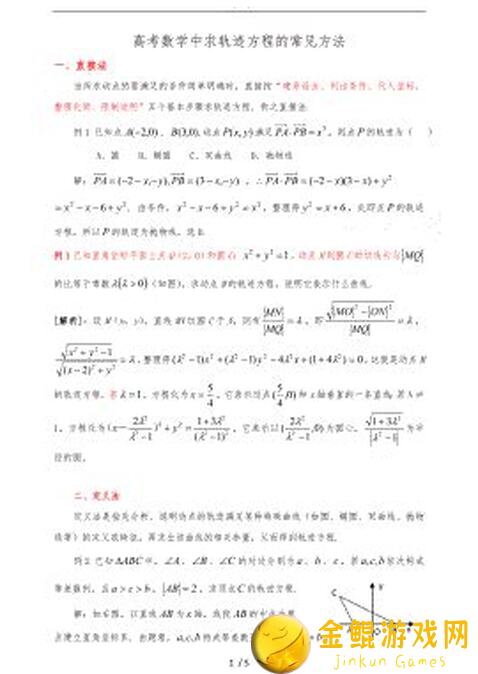 高考数学中求轨迹方程的常见方法
一、直接法
当所求动点的要满足的条件简单明确时，直接按“建系设点、列出条件、代入坐标、
整理化简、限制说明”五个基本步骤求轨迹方程，称之直接法.
例 1 已知点 A(−2,0)、B(3,0), 动点 P(x, y) 满足 PA·PB = x²，则点 P 的轨迹为（ ）
A．圆 B．椭圆 C．双曲线 D．抛物线
解：PA = (−2−x,−y), PB = (3−x,−y)，∴ PA·PB = (−2−x)(3−x)+y²
= x²−x−6+y². 由条件，x²−x−6+y² = x²，整理得 y² = x+6，此即点 P 的轨迹
方程，所以 P 的轨迹为抛物线，选 D.
已知直角坐标平面上点 Q（2，0）和圆 C：x²+y²=1，动点 M 到圆 C 的切线长与 |MQ|
的比等于常数 λ(λ>0)（如图），求动点 M 的轨迹方程，说明它表示什么曲线.
[解析]：设 M（x，y），直线 MN 切圆 C 于 N，则有 |MN|/|MQ| = λ，即 √(|MO|²−|ON|²)/|MQ| = λ，
√(x²+y²−1)/√((x−2)²+y²) = λ. 整理得 (λ²−1)x²+(λ²−1)y²−4λ²x+(1+4λ²)=0，这就是动点 M
的轨迹方程．若 λ=1，方程化为 x=5/4，它表示过点 (5/4,0) 和 x 轴垂直的一条直线；若 λ≠
1，方程化为 (x−2λ²/(λ²−1))²+y²=(1+3λ²)/(λ²−1)²，它表示以 (2λ²/(λ²−1),0) 为圆心，√(1+3λ²)/|λ²−1| 为半
径的圆．
二、定义法
定义法是指先分析、说明动点的轨迹满足某种特殊曲线（如圆、椭圆、双曲线、抛物
线等）的定义或特征，再求出该曲线的相关参量，从而得到轨迹方程.
例 2 已知 ΔABC 中，∠A、∠B、∠C 的对边分别为 a、b、c，若 a,c,b 依次构成
等差数列，且 a>c>b，|AB|=2，求顶点 C 的轨迹方程.
解：如右图，以直线 AB 为 x 轴，线段 AB 的中点为原
点建立直角坐标系. 由题意，a,c,b 构成等差数列
C
y
1 / 5
金鲲游戏网
Jinkun Games